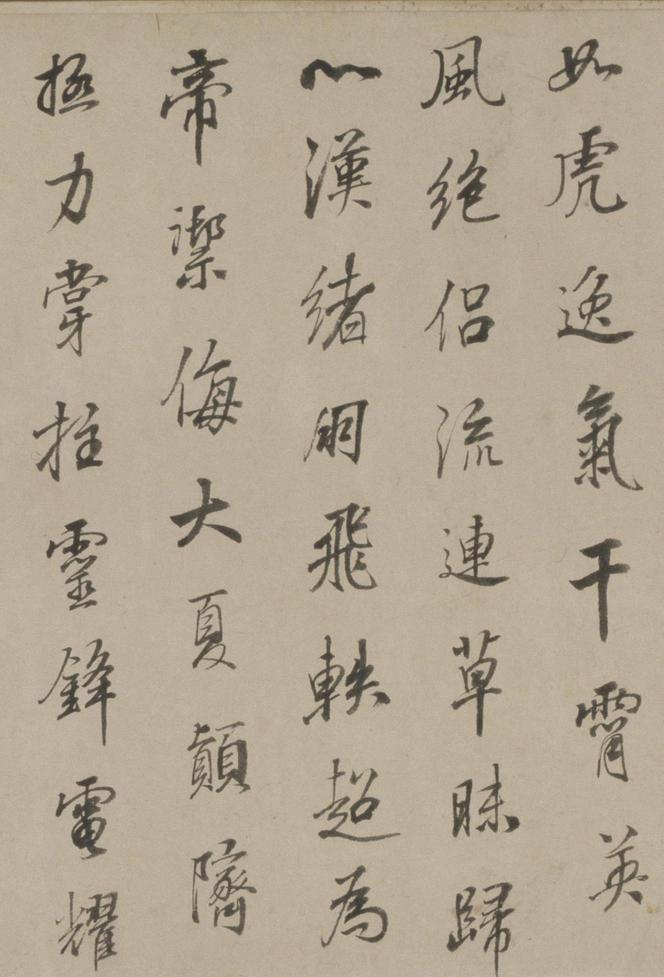 如虎逸氣干霄英
風絶侣流連草昧歸
心漢緒用飛軼超為
帝禦侮大夏顛隮
拯力掌拄靈鋒電耀